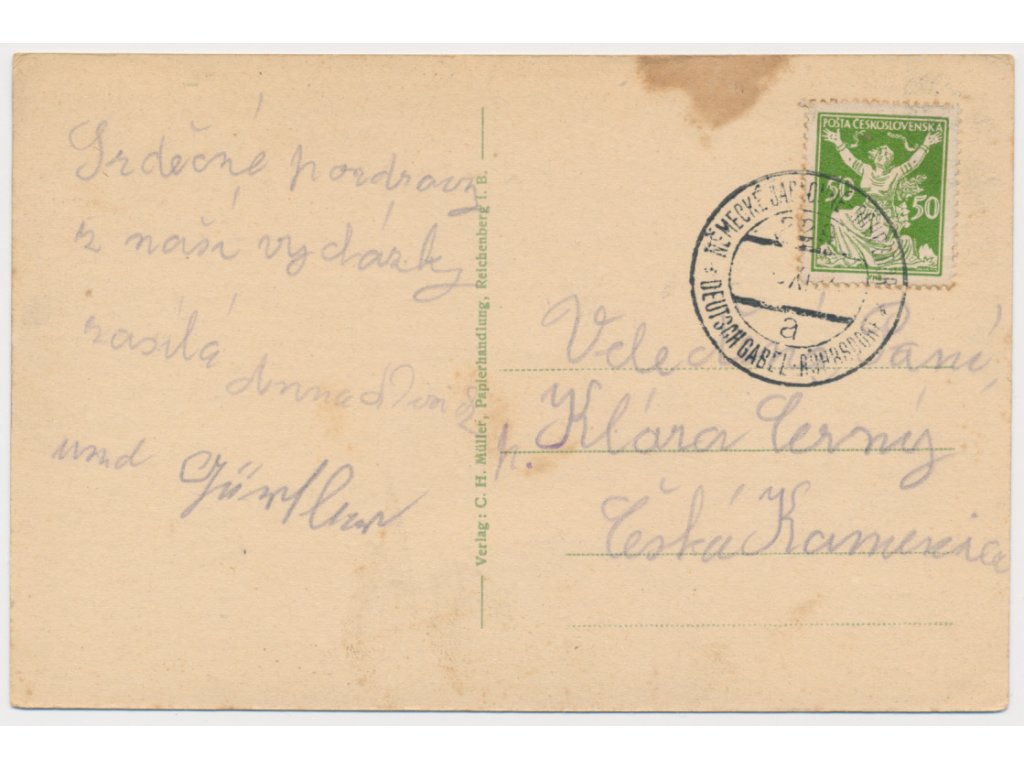 Srdečné pozdravy
z naší vydázky
zasílá
Anna
und Gürtler
Verlag: C. H. Müller, Papierhandlung, Reichenberg i. B.
POŠTA ČESKOSLOVENSKÁ
50 50
* NĚMECKÉ
a
* DEUTSCH GABEL-
Paní,
Klára Černý
Česká Kamenice